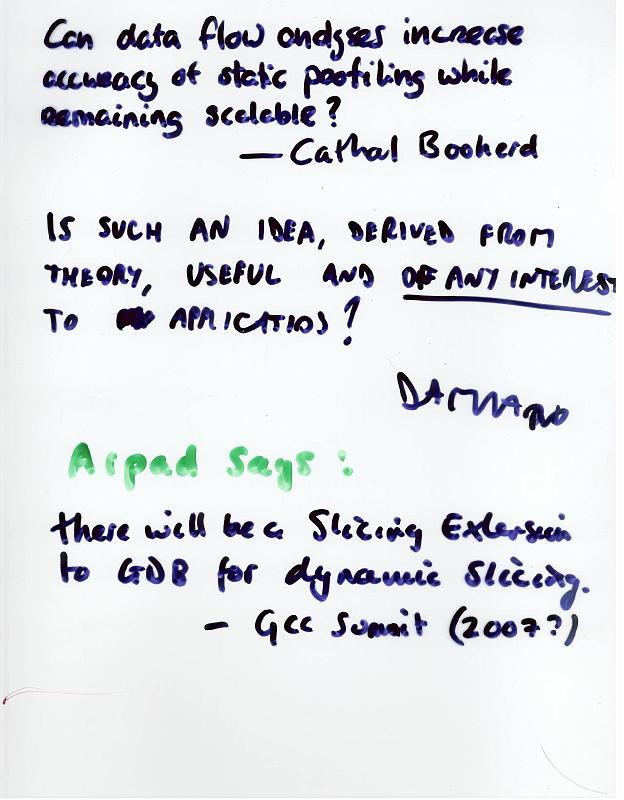 Can data flow analyses increase
accuracy of static profiling while
remaining scalable?
— Cathal Booherd
IS SUCH AN IDEA, DERIVED FROM
THEORY, USEFUL AND OF ANY INTEREST
TO APPLICATIOS?
Arpad says:
there will be a Slicing Extension
to GDB for dynamic Slicing.
- GCC Summit (2007?)